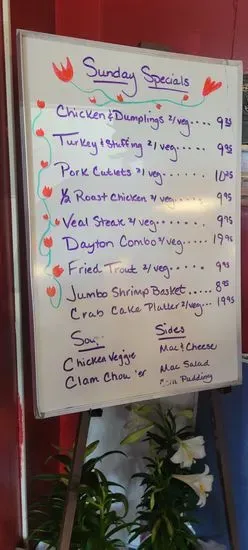 Sunday Specials
Chicken & Dumplings 2/veg..... 9.95
Turkey & Stuffing 2/veg..... 9.95
Pork Cutlets 2/veg...... 10.95
1/2 Roast Chicken 2/veg...... 9.95
Veal Steak 2/veg...... 9.95
Dayton Combo 2/veg..... 19.95
Fried Trout 2/veg...... 9.95
Jumbo Shrimp Basket..... 8.95
Crab Cake Platter 2/veg... 19.95
Sides
Chicken Veggie
Clam
Mac & Cheese
Mac Salad
Pudding